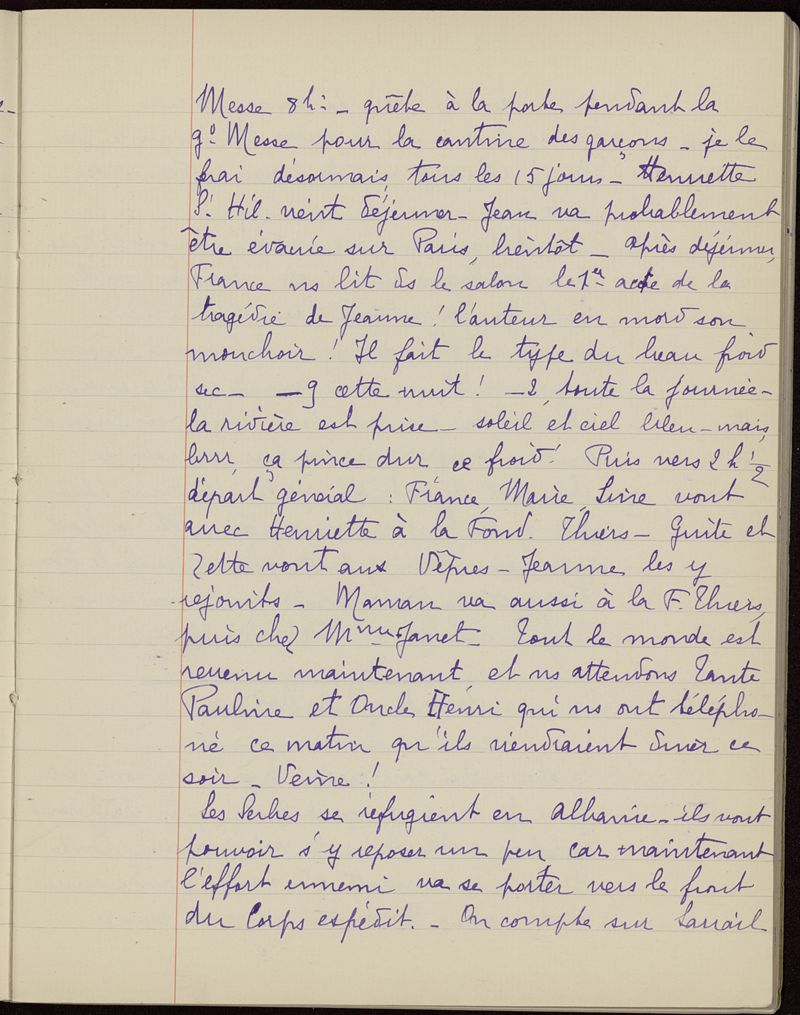 Messe 8h: - quête à la porte pendant la
gde Messe pour la cantine des garçons - je le
frai désormais, tous les 15 jours - Henriette
St. Hil. vient déjeuner - Jean va probablement
être évacué sur Paris, bientôt - après déjeuner,
France ns lit ds le salon le 1er acte de la
tragédie de Jeanne! l'auteur en mord son
mouchoir! Il fait le type du beau froid
sec - -9 cette nuit! -2, toute la journée -
la rivière est prise - soleil et ciel bleu - mais,
brrr, ça pince dur ce froid! Puis vers 2h 1/2
départ général : France, Marie, Line vont
avec Henriette à la Fond. Thiers - Guite et
Zette vont aux Vêpres - Jeanne les y
rejoints - Maman va aussi à la F. Thiers,
puis chez Mme Janet - Tout le monde est
revenu maintenant, et ns attendons Tante
Pauline et Oncle Henri qui ns ont télépho-
né ce matin qu'ils viendraient dîner ce
soir - Veine!
Les Serbes se réfugient en Albanie - ils vont
pouvoir s'y reposer un peu, car maintenant
l'effort ennemi va se porter vers le front
du Corps expédit. - On compte sur Sarrail